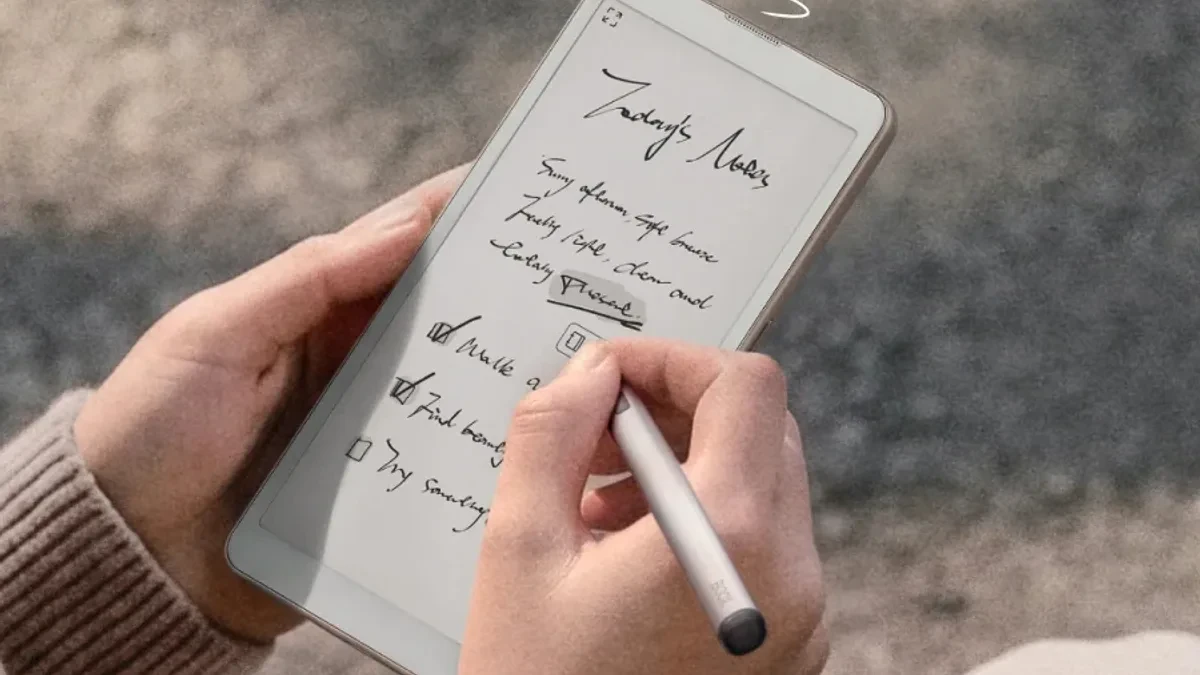 Today's Notes
Sunny afternoon, soft breeze
Feeling light, clear and
Present.
Walk a
Find beauty
Try something
BOOX